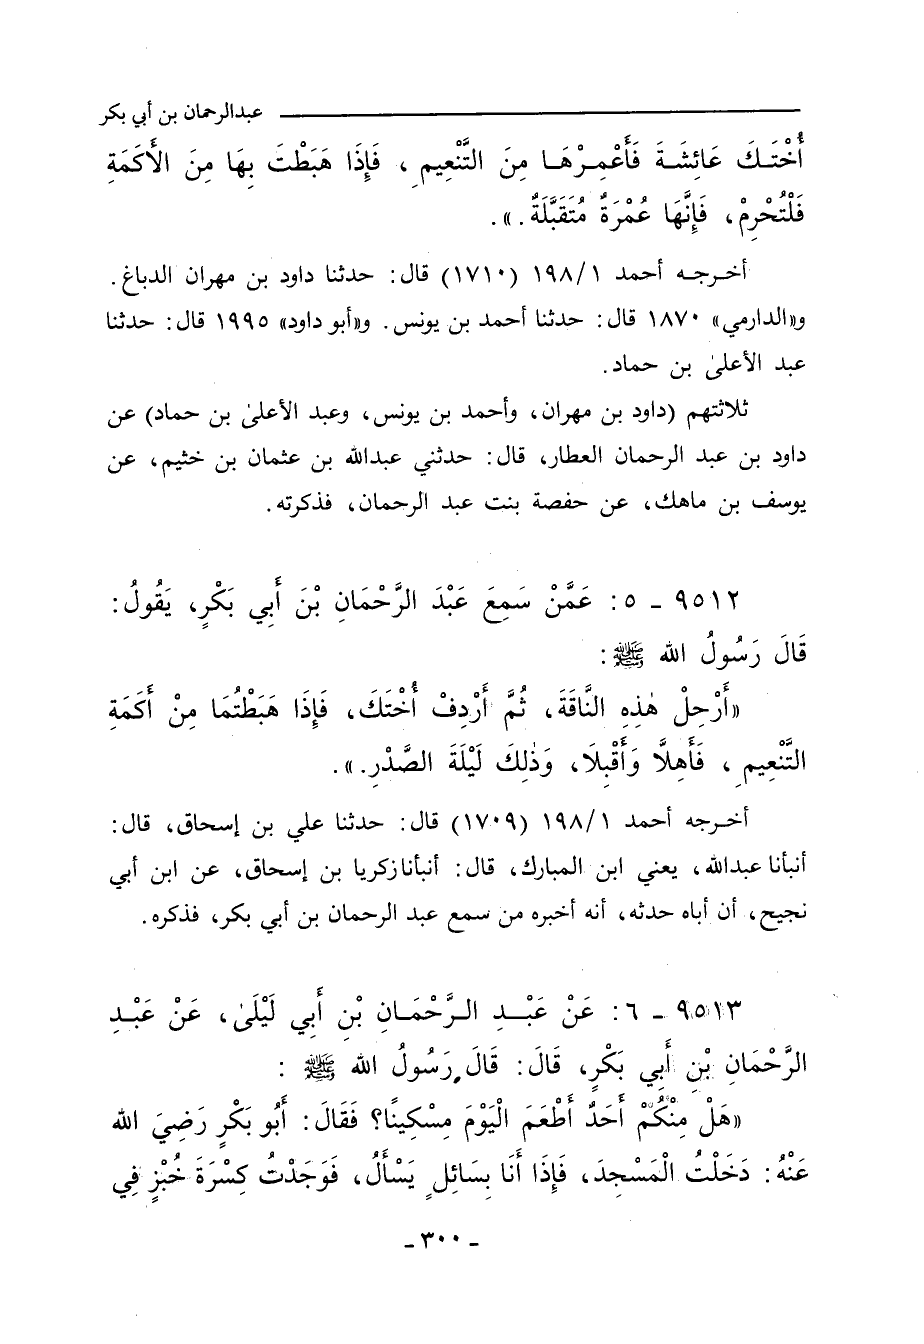 عبدالرحمان بن أبي بكر
أُخْتَـكَ عَائِشَـةَ فَأَعْمِـرْهَـا مِنَ التَّنْعِيمِ ، فَإِذَا هَبَطْتَ بِهَا مِنَ الْأَكَمَةِ
فَلْتُحْرِمْ، فَإِنَّهَا عُمْرَةٌ مُتَقَبَّلَةٌ . ».
أخـرجـه أحمد ١٩٨/١ (١٧١٠) قال: حدثنا داود بن مهران الدباغ .
و«الدارمي» ١٨٧٠ قال: حدثنا أحمد بن يونس. و«أبو داود» ١٩٩٥ قال: حدثنا
عبد الأعلىٰ بن حماد.
ثلاثتهم (داود بن مهران، وأحمد بن يونس، وعبد الأعلىٰ بن حماد) عن
داود بن عبد الرحمان العطار، قال: حدثني عبدالله بن عثمان بن خثيم، عن
يوسف بن ماهك، عن حفصة بنت عبد الرحمان، فذكرته.
٩٥١٢ ـ ٥: عَمَّنْ سَمِعَ عَبْدَ الرَّحْمَانِ بْنَ أَبِي بَكْرٍ، يَقُولُ:
قَالَ رَسُولُ الله ﷺ :
«أَرْحِلْ هٰذِهِ النَّاقَةَ، ثُمَّ أَرْدِفْ أُخْتَكَ، فَإِذَا هَبَطْتُمَا مِنْ أَكَمَةِ
التَّنْعِيمِ ، فَأَهِلَّا وَأَقْبِلَا، وَذٰلِكَ لَيْلَةَ الصَّدْرِ. ».
أخـرجه أحمد ١٩٨/١ (١٧٠٩) قال: حدثنا علي بن إسحاق، قال:
أنبأنا عبدالله، يعني ابن المبارك، قال: أنبأنا زكريا بن إسحاق، عن ابن أبي
نجيح، أن أباه حدثه، أنه أخبره من سمع عبد الرحمان بن أبي بكر، فذكره.
٩٥١٣ ـ ٦: عَنْ عَبْـدِ الـرَّحْمَـانِ بْنِ أَبِي لَيْلَىٰ، عَنْ عَبْـدِ
الرَّحْمَانِ بْنِ أَبِي بَكْرٍ، قَالَ: قَالَ رَسُولُ الله ﷺ :
«هَلْ مِنْكُمْ أَحَدٌ أَطْعَمَ الْيَوْمَ مِسْكِينًا؟ فَقَالَ: أَبُو بَكْرٍ رَضِيَ الله
عَنْهُ: دَخَلْتُ الْمَسْجِدَ، فَإِذَا أَنَا بِسَائِلٍ يَسْأَلُ، فَوَجَدْتُ كِسْرَةَ خُبْزٍ فِي
ـ ٣٠٠ ـ